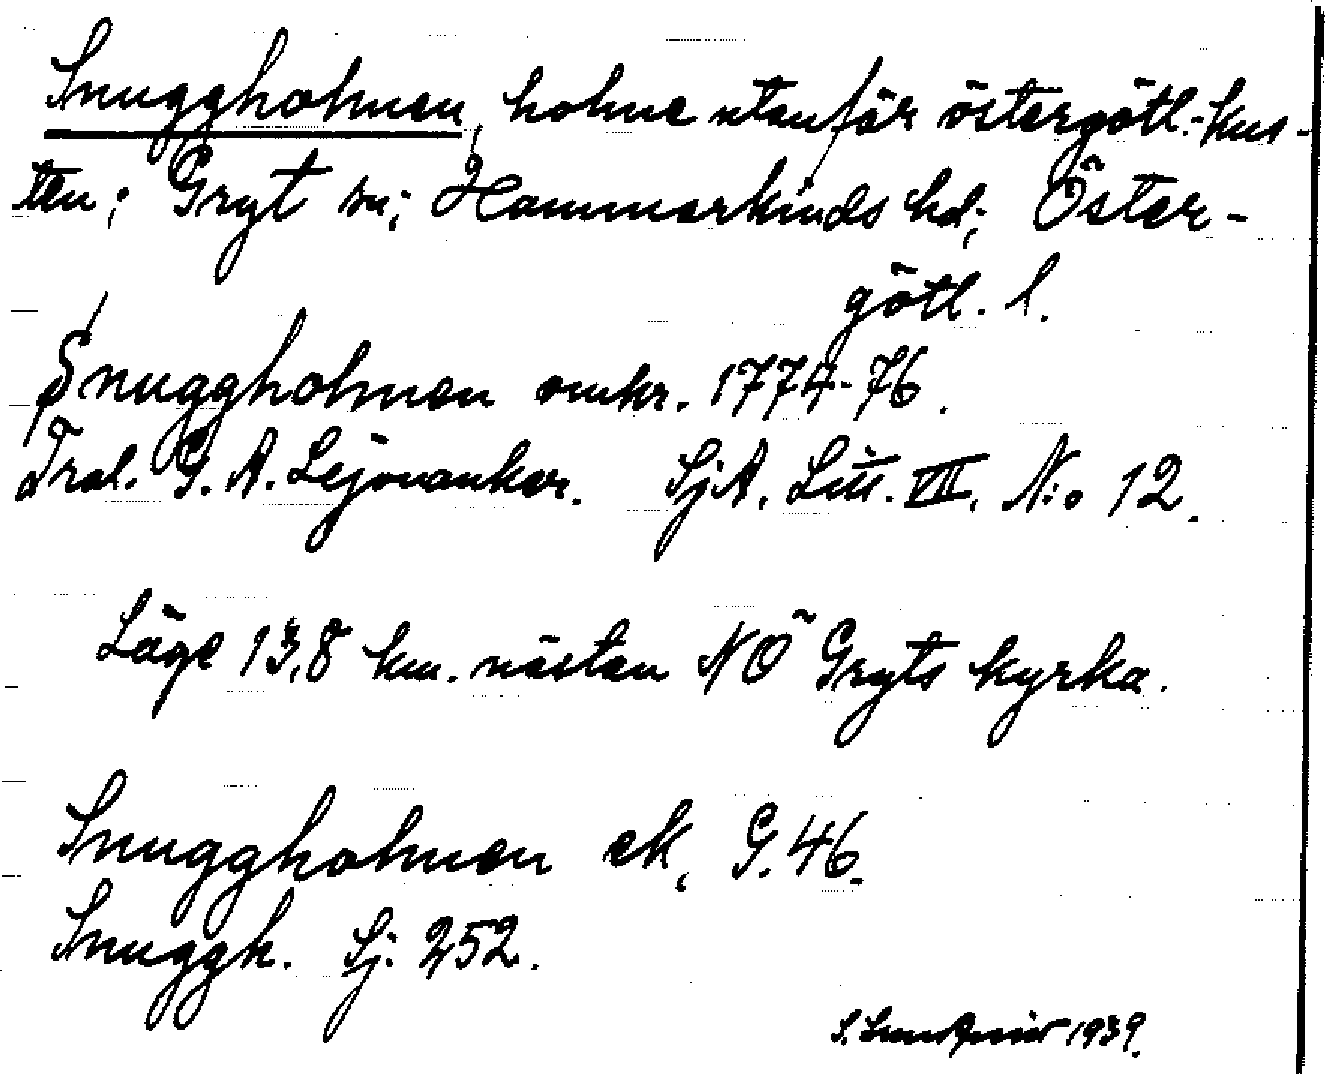 Snuggholmen, holme utanför östergötl.-kus-
ten; Gryt sn; Hammarkinds hd; Öster-
götl. l.
Snuggholmen omkr. 1774-76.
Tral. G. A. Lejonanker. SjA. Litt. VII. N:o 12.
Läge 13,8 km. nästan NÖ Gryts kyrka.
Snuggholmen ek, G. 46.
Snuggh. Sj. 252.
S. 1939.